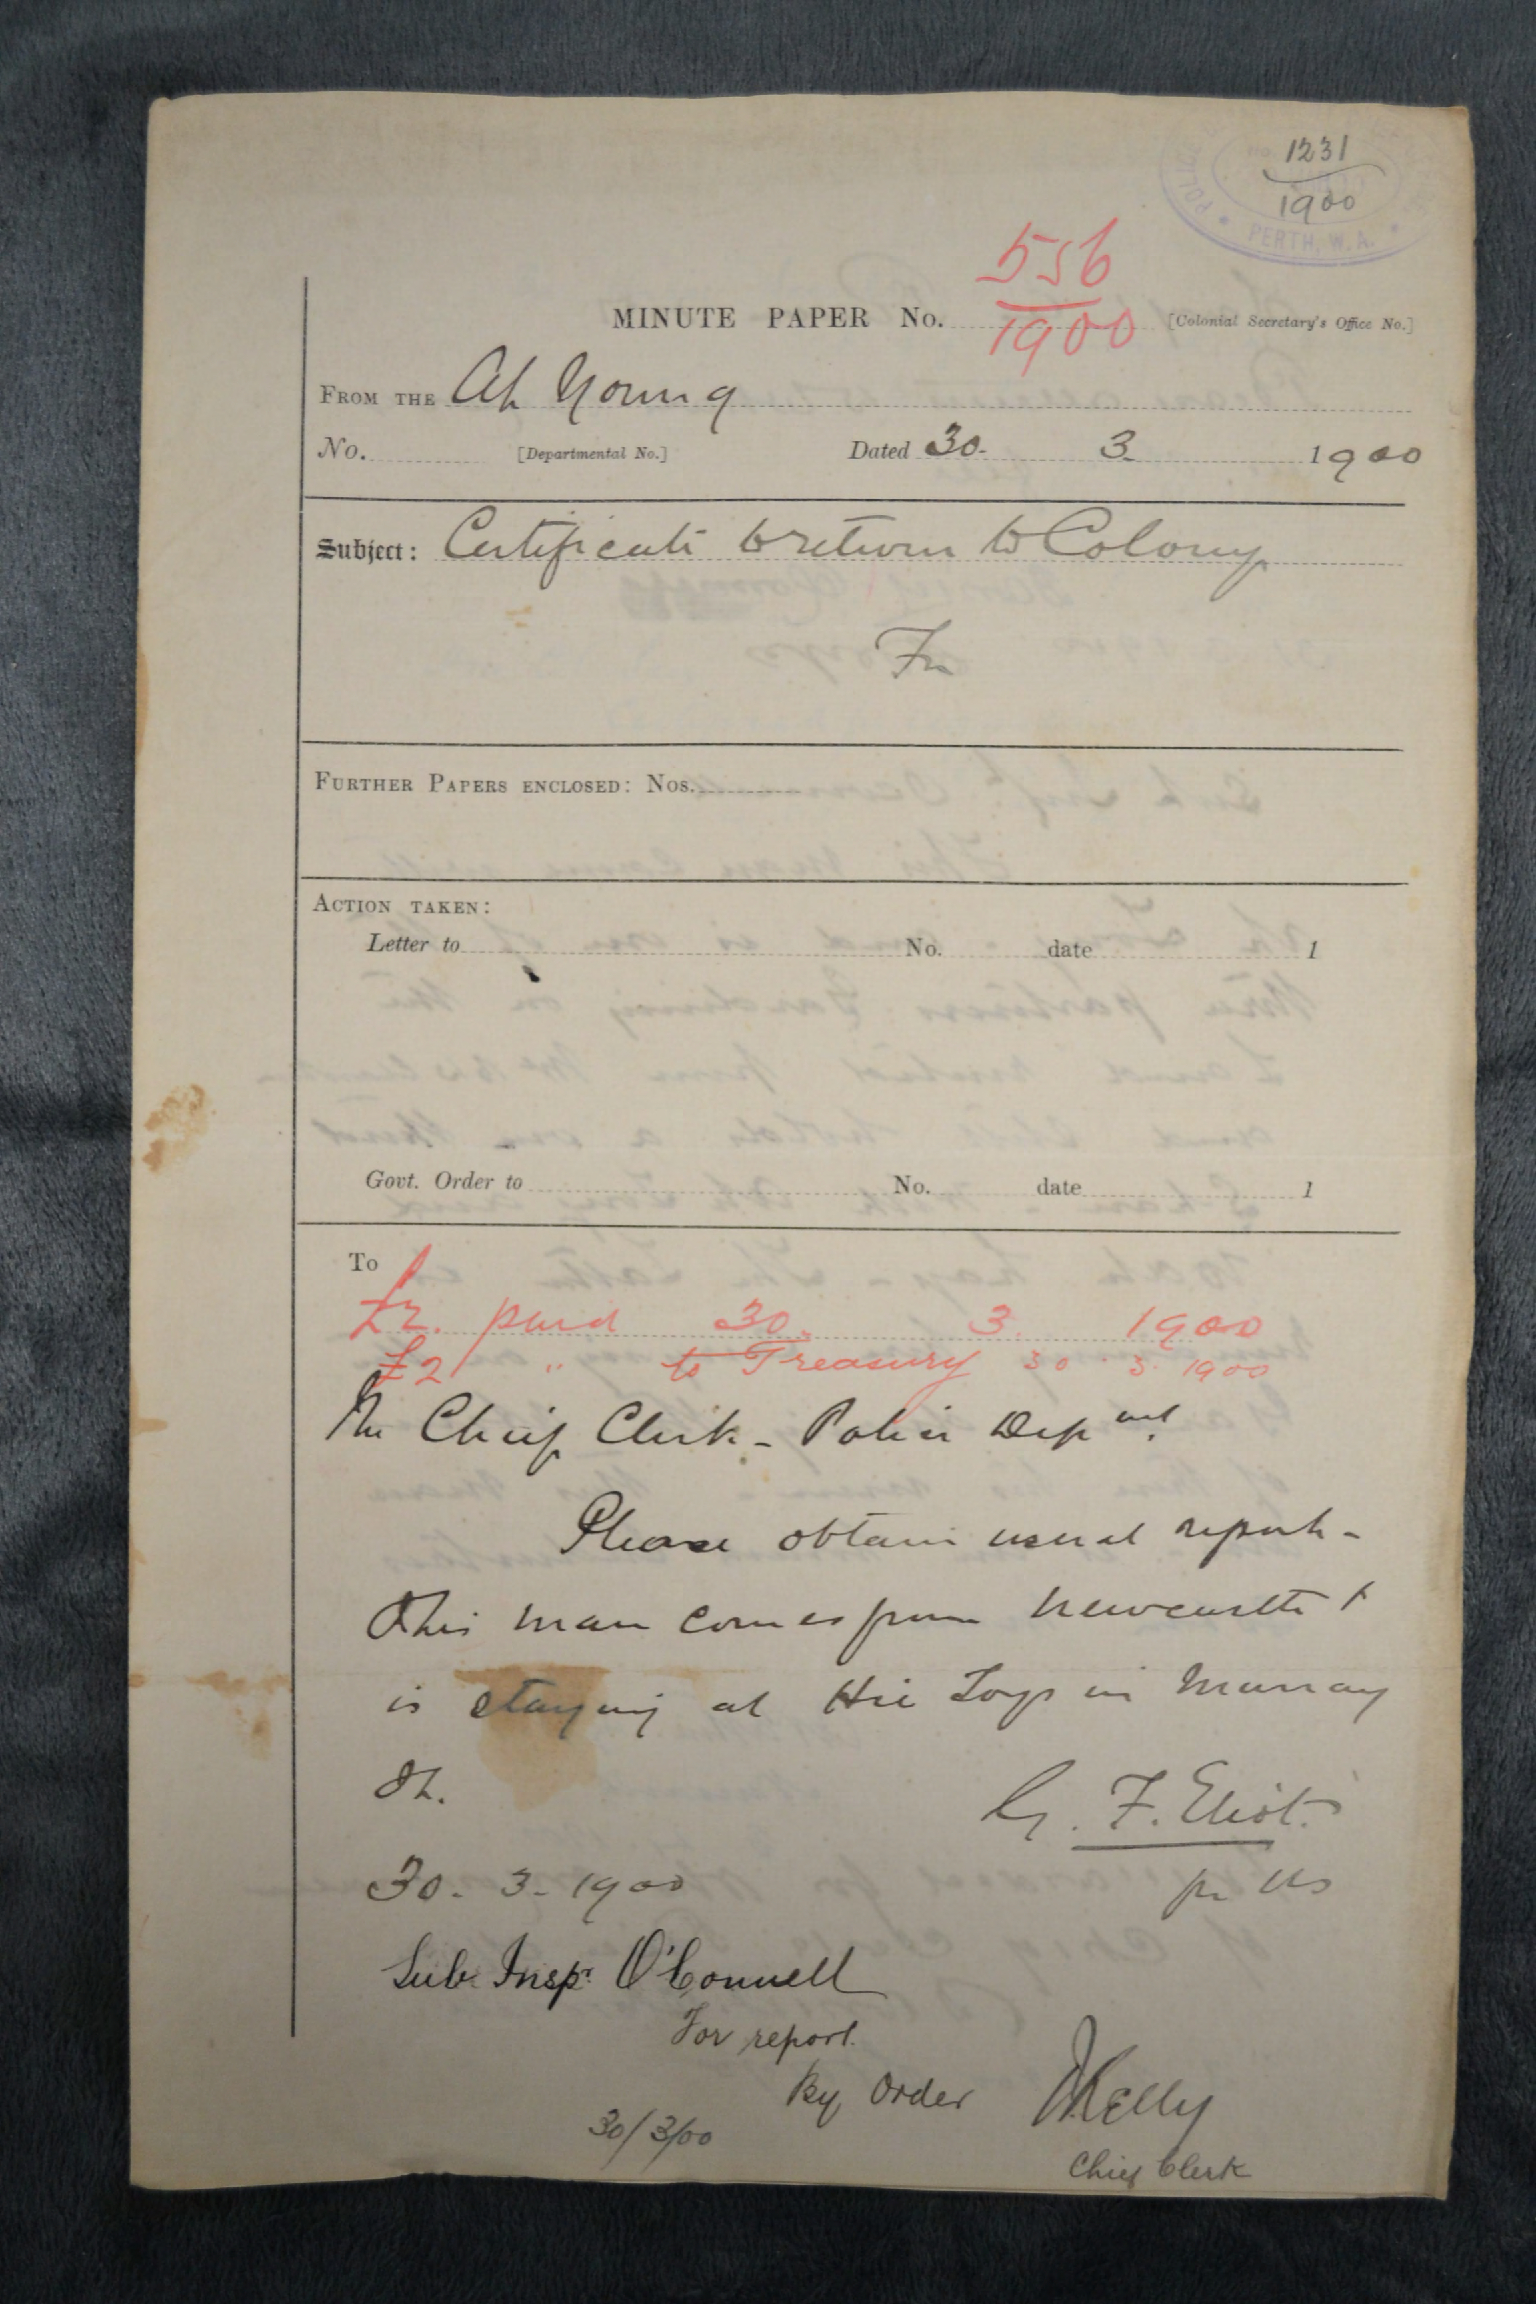 1231
1900
POLICE
PERTH, W.A.
556
1900
MINUTE PAPER No. [Colonial Secretary's Office No.]
FROM THE Ah Young
No. [Departmental No.] Dated 30. 3. 1900
Subject: Certificate to return to Colony
FURTHER PAPERS ENCLOSED: Nos.
ACTION TAKEN:
Letter to No. date 1
Govt. Order to No. date 1
To
£2. paid 30. 3. 1900
£2 " to Treasury 30. 3. 1900
The Chief Clerk - Police Depmt.
Please obtain usual report -
This man comes from Newcastle &
is staying at Hie Loys in Murray
St.
G. F. Eliot.
pr US
30. 3. 1900
Sub Inspr. O'Connell
For report.
By Order
JKelly
Chief Clerk
30/3/00